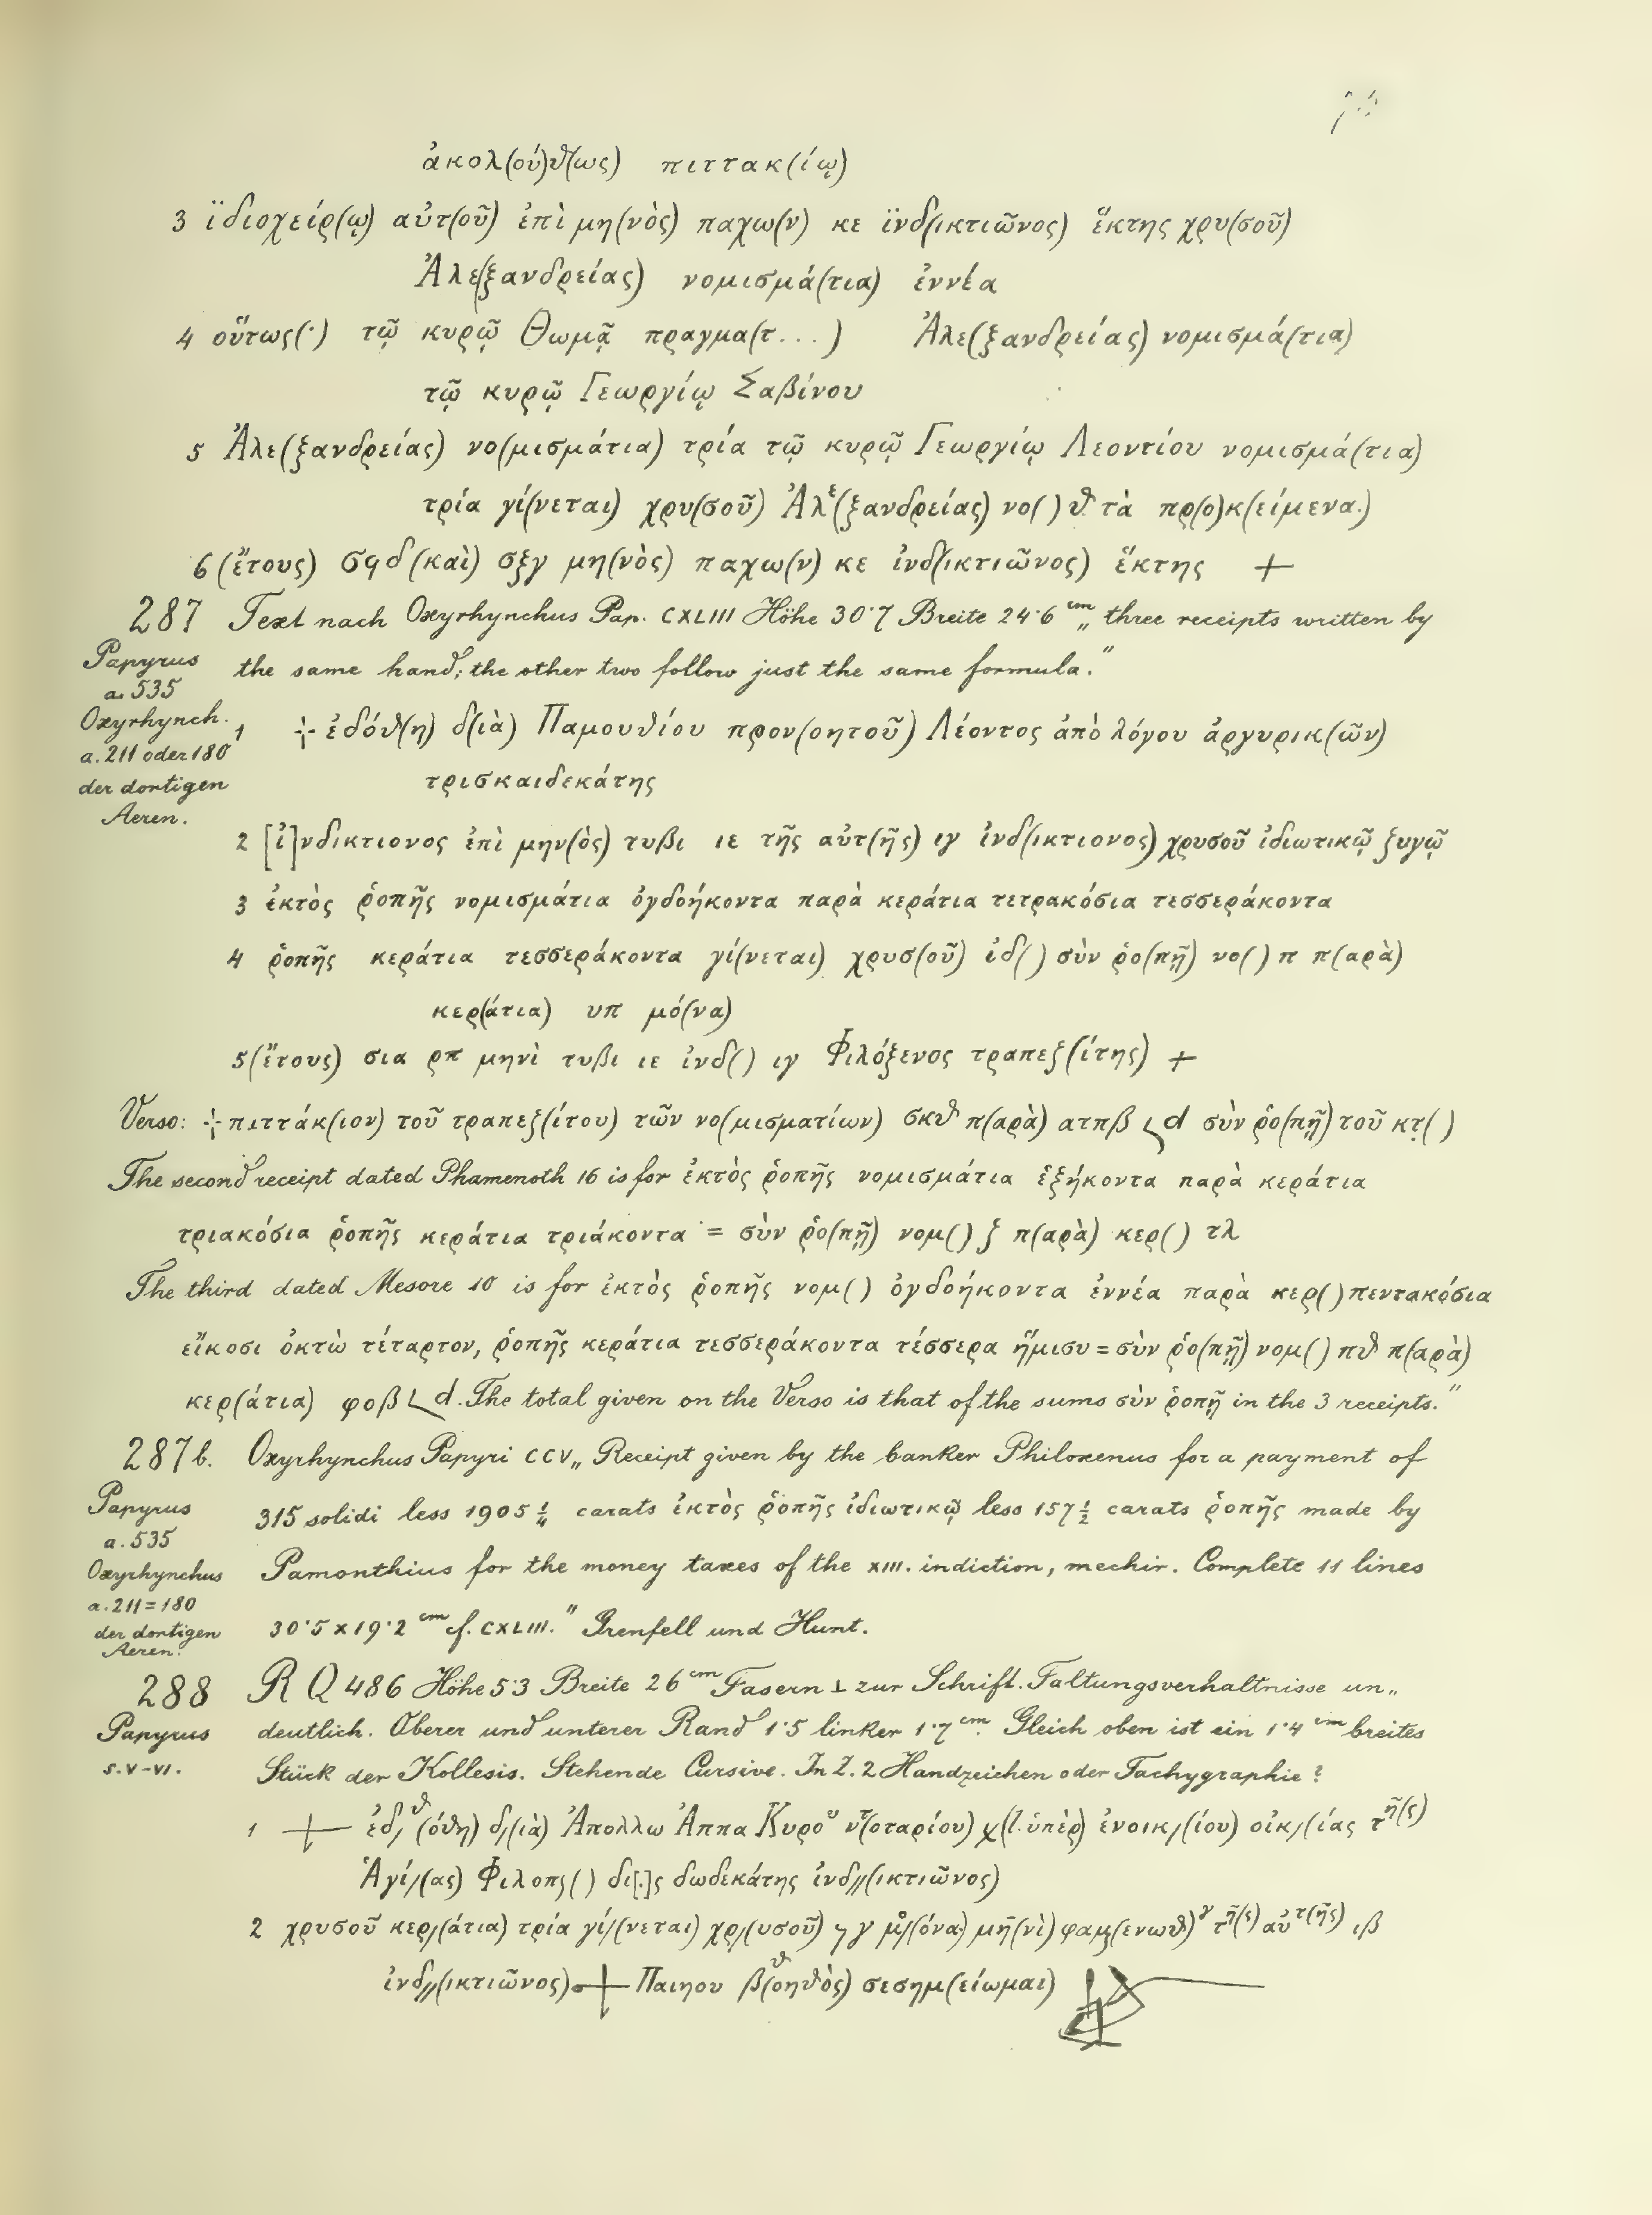 ἀκολ(ού)θ(ως) πιττακ(ίῳ)
3 ϊδιοχείρ(ῳ) αὐτ(οῦ) ἐπὶ μη(νὸς) παχω(ν) κε ϊνδ(ικτιῶνος) ἕκτης χρυ(σοῦ)
Ἀλε(ξανδρείας) νομισμά(τια) ἐννέα
4 οὕτως(·) τῷ κυρῷ Θωμᾷ πραγμα(τ...) Ἀλε(ξανδρείας) νομισμά(τια)
τῷ κυρῷ Γεωργίῳ Σαβίνου
5 Ἀλε(ξανδρείας) νο(μισμάτια) τρία τῷ κυρῷ Γεωργίῳ Λεοντίου νομισμά(τια)
τρία γί(νεται) χρυ(σοῦ) Ἀλε(ξανδρείας) νο( ) θ τὰ πρ(ο)κ(είμενα.)
6 (ἔτους) σϙδ (καὶ) σξγ μη(νὸς) παχω(ν) κε ἰνδ(ικτιῶνος) ἕκτης +
287 Text nach Oxyrhynchus Pap. CXLIII Höhe 30·7 Breite 24·6 cm „three receipts written by
Papyrus the same hand; the other two follow just the same formula."
a. 535
Oxyrhynch.
a. 211 oder 180
der dortigen
Aeren.
1 ⳨ ἐδόθ(η) δ(ιὰ) Παμουθίου προν(οητοῦ) Λέοντος ἀπὸ λόγου ἀργυρικ(ῶν)
τρισκαιδεκάτης
2 [ἰ]νδικτιονος ἐπὶ μην(ὸς) τυβι ιε τῆς αὐτ(ῆς) ιγ ἰνδ(ικτιονος) χρυσοῦ ἰδιωτικῷ ζυγῷ
3 ἐκτὸς ῥοπῆς νομισμάτια ὀγδοήκοντα παρὰ κεράτια τετρακόσια τεσσεράκοντα
4 ῥοπῆς κεράτια τεσσεράκοντα γί(νεται) χρυσ(οῦ) ἰδ( ) σὺν ῥο(πῇ) νο( ) π π(αρὰ)
κερ(άτια) υπ μό(να)
5 (ἔτους) σια ρπ μηνὶ τυβι ιε ἰνδ( ) ιγ Φιλόξενος τραπεζ(ίτης) +
Verso: ⳨ πιττάκ(ιον) τοῦ τραπεζ(ίτου) τῶν νο(μισματίων) σκθ π(αρὰ) ατπβ 𐅵 d σὺν ῥο(πῇ) τοῦ κτ̣( )
The second receipt dated Phamenoth 16 is for ἐκτὸς ῥοπῆς νομισμάτια ἑξήκοντα παρὰ κεράτια
τριακόσια ῥοπῆς κεράτια τριάκοντα = σὺν ῥο(πῇ) νομ( ) ξ π(αρὰ) κερ( ) τλ
The third dated Mesore 10 is for ἐκτὸς ῥοπῆς νομ( ) ὀγδοήκοντα ἐννέα παρὰ κερ( ) πεντακόσια
εἴκοσι ὀκτὼ τέταρτον, ῥοπῆς κεράτια τεσσεράκοντα τέσσερα ἥμισυ = σὺν ῥο(πῇ) νομ( ) πθ π(αρὰ)
κερ(άτια) φοβ 𐅵 d. The total given on the Verso is that of the sums σὺν ῥοπῇ in the 3 receipts."
287 b. Oxyrhynchus Papyri CCV „Receipt given by the banker Philoxenus for a payment of
Papyrus 315 solidi less 1905 ¼ carats ἐκτὸς ῥοπῆς ἰδιωτικῷ less 157 ½ carats ῥοπῆς made by
a. 535
Oxyrhynchus Pamonthius for the money taxes of the XIII. indiction, mechir. Complete 11 lines
a. 211 = 180
der dortigen 30·5 x 19·2 cm cf. CXLIII." Grenfell und Hunt.
Aeren.
288 R Q 486 Höhe 5·3 Breite 26 cm Fasern ⊥ zur Schrift. Faltungsverhaltnisse un„
Papyrus deutlich. Oberer und unterer Rand 1·5 linker 1·7 cm. Gleich oben ist ein 1·4 cm breites
s. V-VI. Stück der Kollesis. Stehende Cursive. In Z. 2 Handzeichen oder Tachygraphie?
1 + ἐδ/θ(όθη) δ/(ιὰ) Ἀπολλω Ἀππα Κυροῦ ντ(οταρίου) χ(l. ὑπὲρ) ἐνοικ/(ίου) οἰκ/(ίας) τῆ(ς)
Ἁγί/(ας) Φιλοπς( ) δι[.]ς δωδεκάτης ἰνδ//(ικτιῶνος)
2 χρυσοῦ κερ/(άτια) τρία γί/(νεται) χρ/(υσοῦ) 7 γ μο/(όνα) μη(νὶ) φαμ(ενωθ) γ τῆ(ς) αὐτ(ῆς) ιβ
ἰνδ//(ικτιῶνος) + Παιηου βθ(οηθὸς) σεσημ(είωμαι)